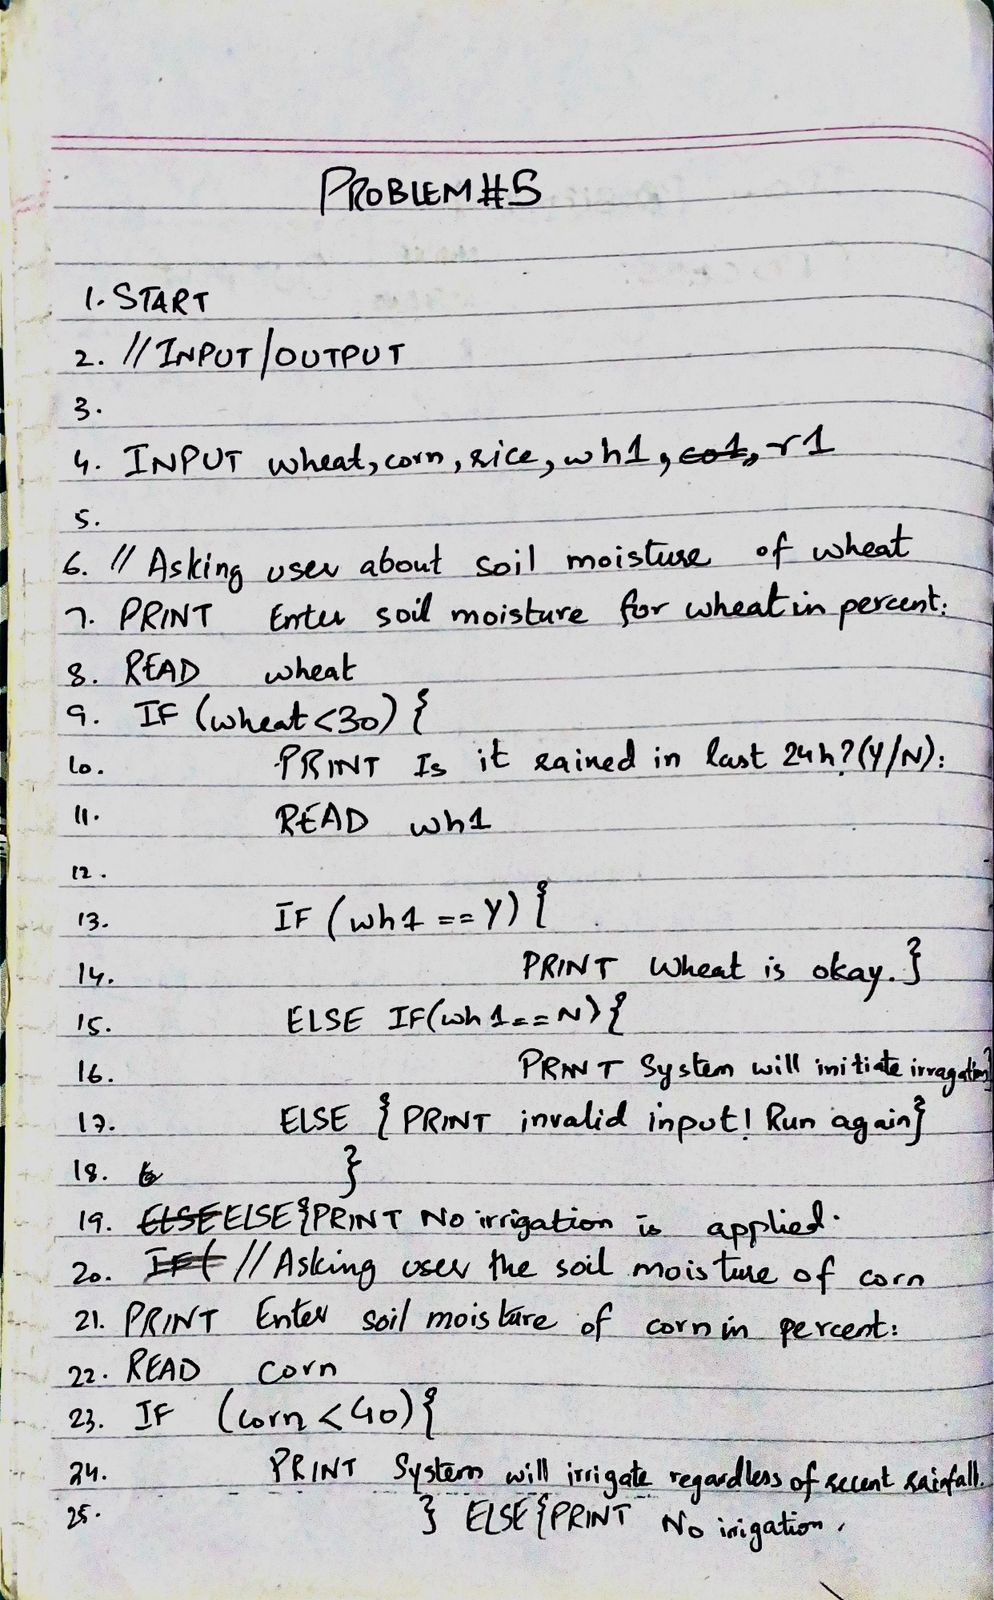 PROBLEM#5
1. START
2. // INPUT/OUTPUT
3.
4. INPUT wheat, corn, rice, wh1, co1, r1
5.
6. // Asking user about soil moisture of wheat
7. PRINT Enter soil moisture for wheat in percent:
8. READ wheat
9. IF (wheat<30) {
10. PRINT Is it rained in last 24h? (Y/N):
11. READ wh1
12.
13. IF (wh1 == Y) {
14. PRINT Wheat is okay. }
15. ELSE IF(wh1==N) {
16. PRINT System will initiate irragation}
17. ELSE { PRINT invalid input! Run again}
18. }
19. ELSE ELSE {PRINT No irrigation is applied.
20. IF( // Asking user the soil moisture of corn
21. PRINT Enter soil moisture of corn in percent:
22. READ corn
23. IF (corn < 40) {
24. PRINT System will irrigate regardless of recent rainfall.
25. } ELSE {PRINT No irigation.